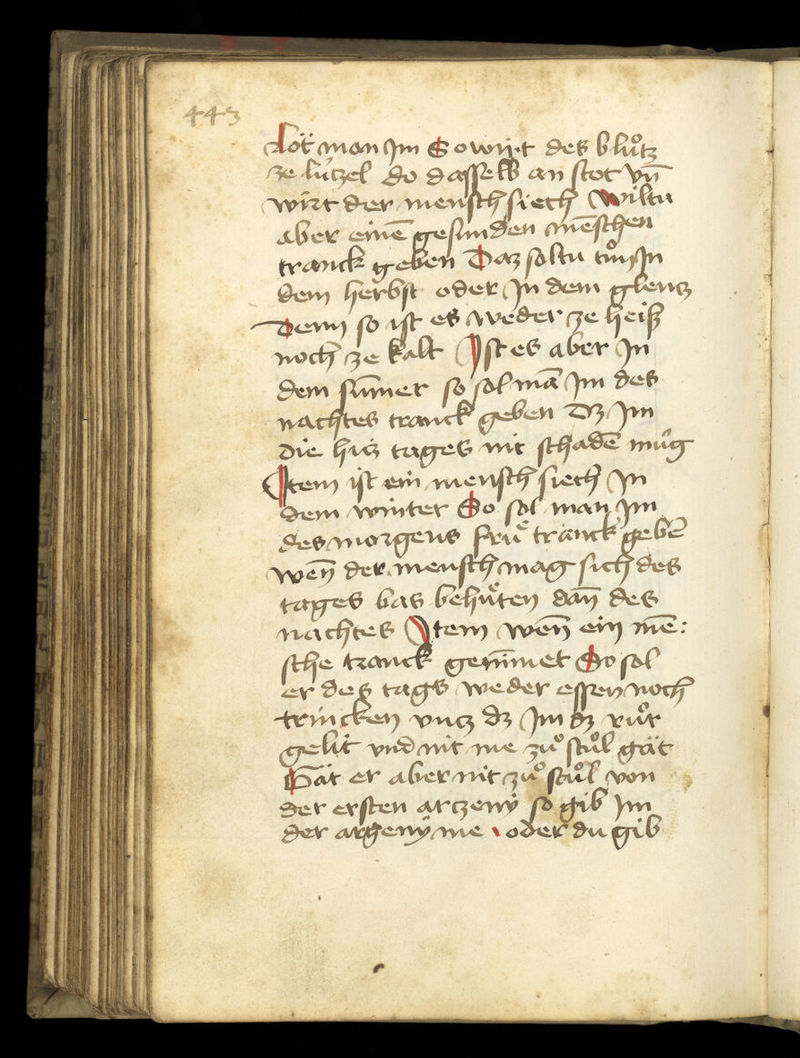 443
Lăt man Jm So wirt des bluͦtz
ze lützel do dasselb an stot vn̄
wirt der mensch siech Wiltu
aber eine͞ gesunden me͞schen
tranck geben Daz soltu tuͦn Jn
dem herbst oder Jn dem glentz
Denn so ist es weder ze heiß
noch ze kalt Jst es aber Jn
dem sum̄er so sol ma͞ Jm des
nachtes tranck geben Dz Jm
die hitz tages nit schade͞ müg
Jtem ist ein mensch siech Jn
dem winter So sol man Jm
des morgens fruͤ tranck gebe͞
wen̄ der mensch mag sich des
tages bas behuͤten dan̄ des
nachtes Jtem wen̄ ein me͞:
sche tranck genim̄et So sol
er des tags weder essen noch
trincken vntz dz Jm dz ruͦr
gelit vnd nit me zuͦ stuͦl găt
Găt er aber nit zuͦ stuͦl von
der ersten artzeny so gib Jm
der artzeny me oder du gib